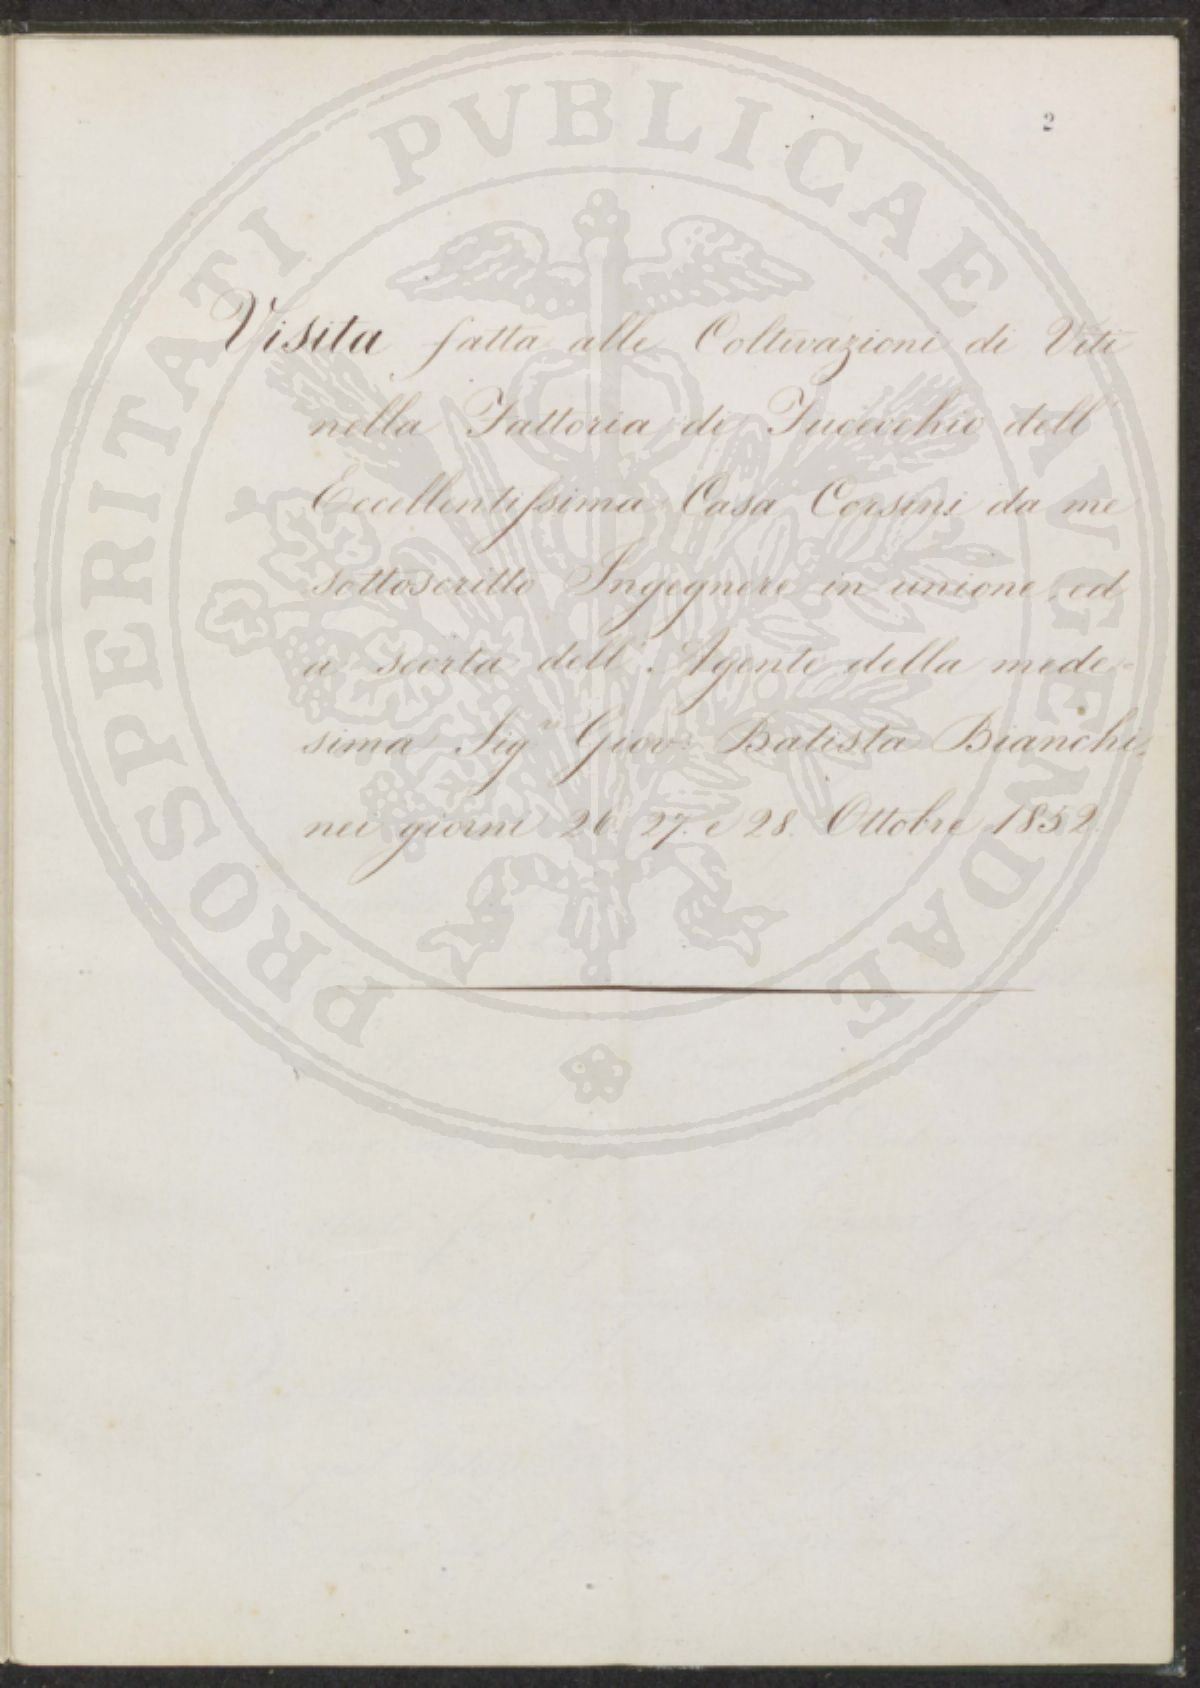 2
Visita fatta alle Coltivazioni di Viti
nella Fattoria di Fucecchio dell'
Eccellentissima Casa Corsini da me
sottoscritto Ingegnere in unione, ed
a scorta dell'Agente della mede-
sima Sigre Giovi Batista Bianchi,
nei giorni 26. 27. e 28. Ottobre 1852.
PROSPERITATI PVBLICAE AVGENDAE